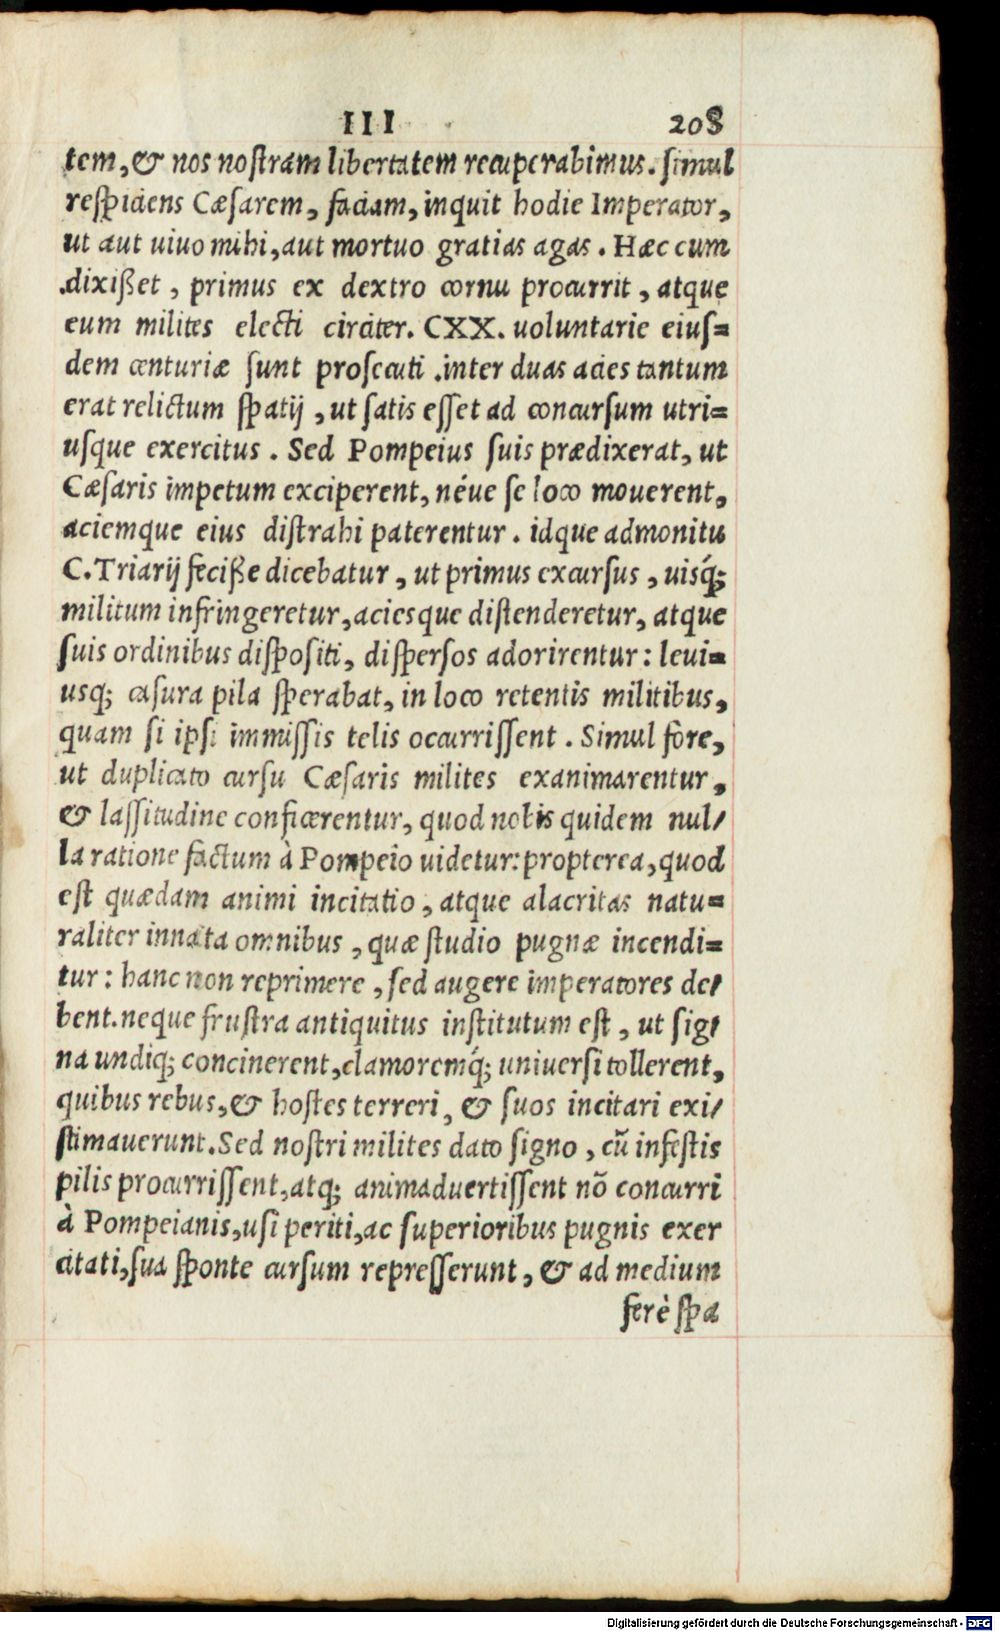 III 208
tem, & nos noſtram libertatem recuperabimus. ſimul
reſpiciens Cæſarem, faciam, inquit hodie Imperator,
ut aut uiuo mihi, aut mortuo gratias agas. Hæc cum
dixißet, primus ex dextro cornu procurrit, atque
eum milites electi circiter. CXX. uoluntarie eiuſ=
dem centuriæ ſunt proſecuti. inter duas acies tantum
erat relictum ſpatij, ut ſatis eſſet ad concurſum utri=
uſque exercitus. Sed Pompeius ſuis prædixerat, ut
Cæſaris impetum exciperent, néue ſe loco mouerent,
aciemque eius diſtrahi paterentur. idque admonitu
C. Triarij feciße dicebatur, ut primus excurſus, uisq́;
militum infringeretur, aciesque diſtenderetur, atque
ſuis ordinibus diſpoſiti, diſperſos adorirentur: leui=
usq; caſura pila ſperabat, in loco retentis militibus,
quam ſi ipſi immiſſis telis occurriſſent. Simul fore,
ut duplicato curſu Cæſaris milites exanimarentur,
& laſſitudine conficerentur, quod nobis quidem nul/
la ratione factum à Pompeio uidetur: propterea, quod
eſt quædam animi incitatio, atque alacritas natu=
raliter innata omnibus, quæ ſtudio pugnæ incendi=
tur: hanc non reprimere, ſed augere imperatores de/
bent. neque fruſtra antiquitus inſtitutum eſt, ut ſig/
na undiq; concinerent, clamoremq́; uniuerſi tollerent,
quibus rebus, & hoſtes terreri, & ſuos incitari exi/
ſtimauerunt. Sed noſtri milites dato ſigno, cũ infeſtis
pilis procurriſſent, atq; animaduertiſſent nõ concurri
à Pompeianis, uſi periti, ac ſuperioribus pugnis exer
citati, ſua ſponte curſum repreſſerunt, & ad medium
ferè ſpa
Digitalisierung gefördert durch die Deutsche Forschungsgemeinschaft - DFG